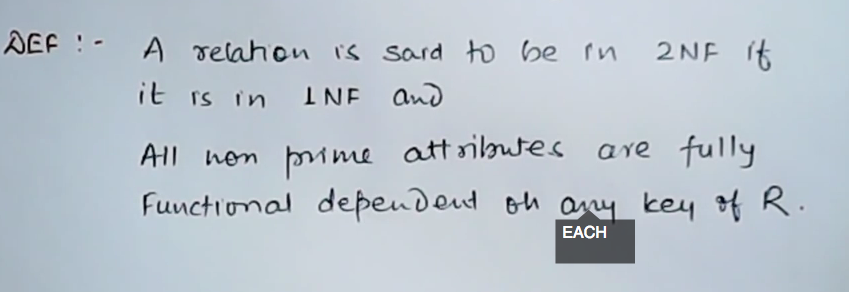 DEF :- A relation is said to be in 2NF if
it is in 1NF and
All non prime attributes are fully
Functional dependent on any key of R.
EACH